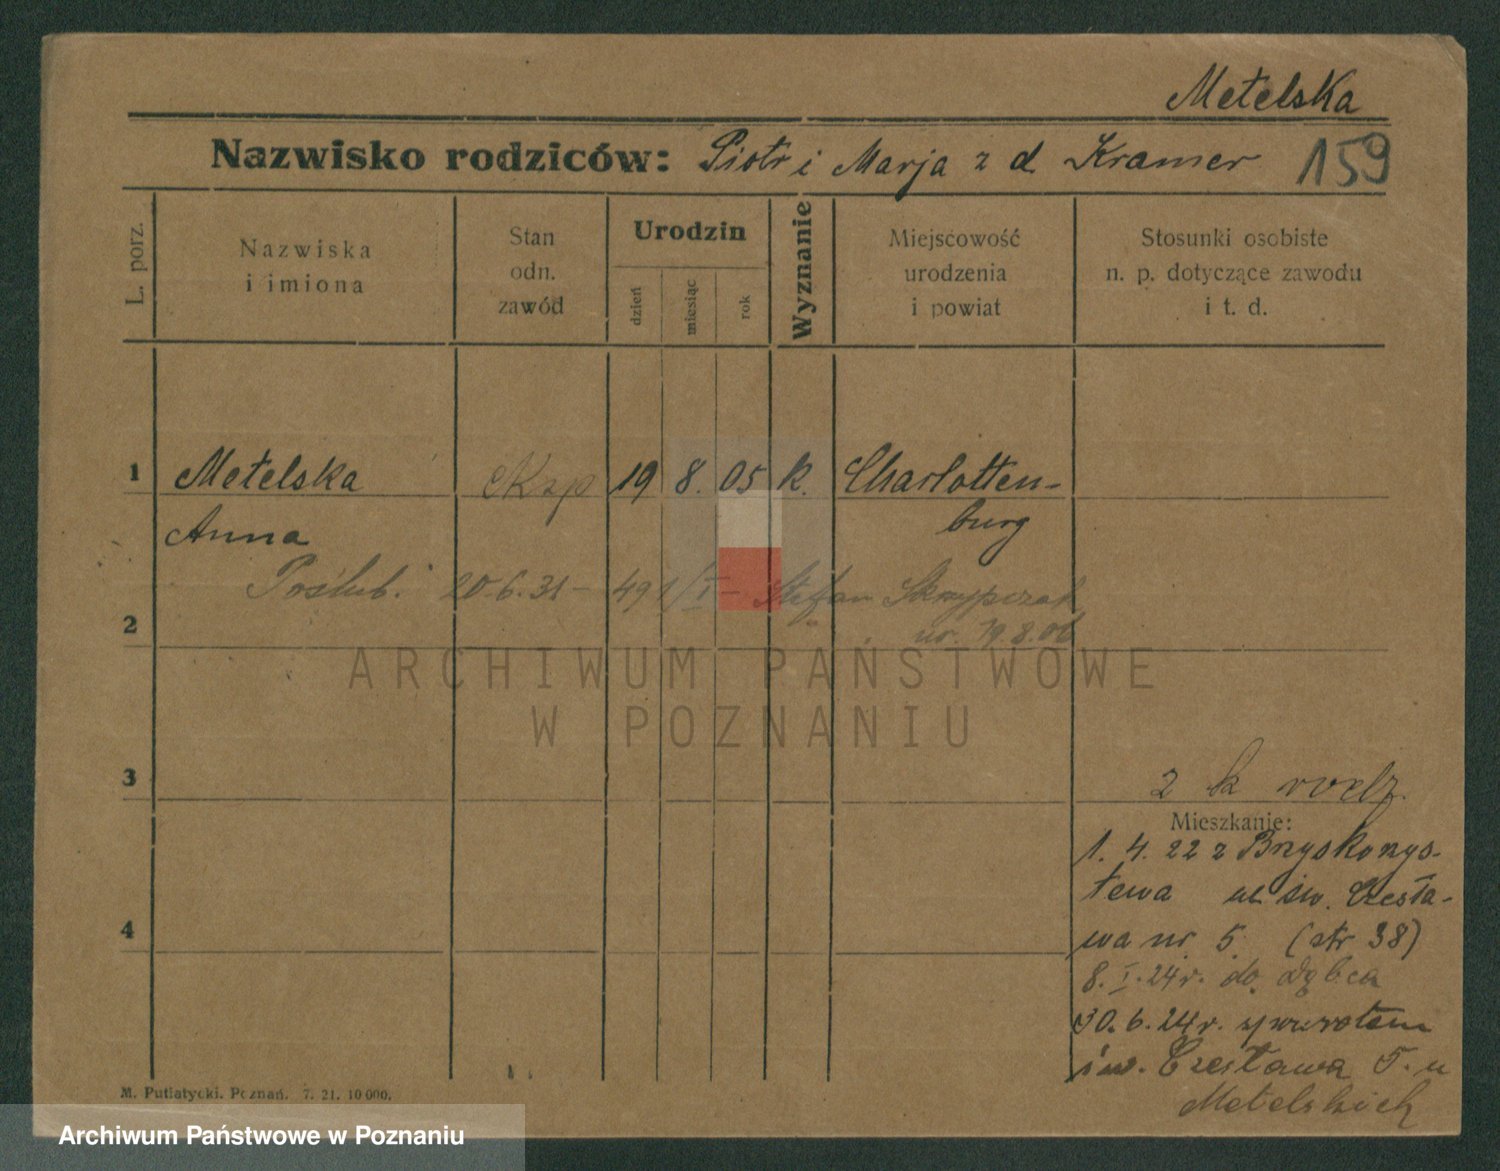 Metelska
Nazwisko rodziców: Piotr i Marja z d. Kramer 159
L. porz.
Nazwiska
i imiona
Stan
odn.
zawód
Urodzin
dzień
miesiąc
rok
Wyznanie
Miejscowość
urodzenia
i powiat
Stosunki osobiste
n. p. dotyczące zawodu
i t. d.
1 Metelska 19 8. 05 k. Charlotten-
Anna burg
Poślub. 20.6.31 - Stefan Skrzypczak
2 ur. 19.8.06
ARCHIWUM PAŃSTWOWE
W POZNANIU
3 2 k rodz.
Mieszkanie:
1. 4. 22 z
tewa ul. św. Czesła-
4 wa nr. 5. (str 38)
8. I. 24r. do Dębca
30. 6. 24r. zpowrotem
św. Czesława 5. u
Metelskich
M. Putiatycki. Poznań. 7. 21. 10 000.
Archiwum Państwowe w Poznaniu